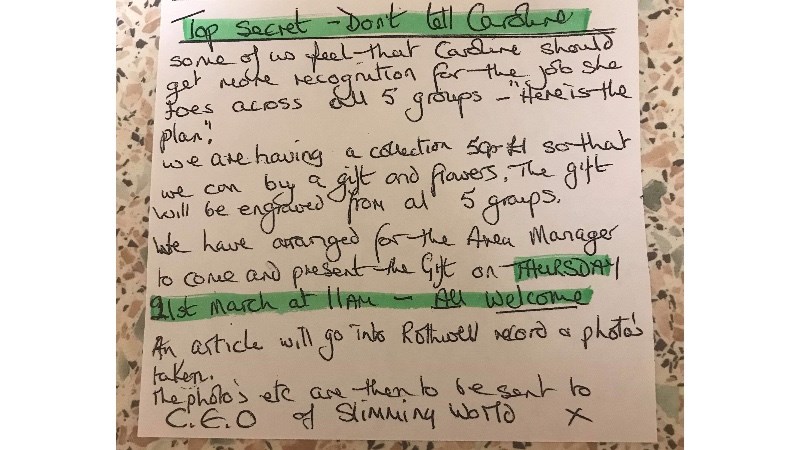 Top Secret - Don't tell Caroline
some of us feel that Caroline should
get more recognition for the job she
does across all 5 groups - "Here is the
plan".
we are having a collection 50p-£1 so that
we can by a gift and flowers. The gift
will be engraved from all 5 groups.
We have arranged for the Area Manager
to come and present the Gift on THURSDAY
21st March at 11AM - All Welcome
An article will go into Rothwell record & photo's
taken.
The photo's etc are then to be sent to
C.E.O of Slimming World X